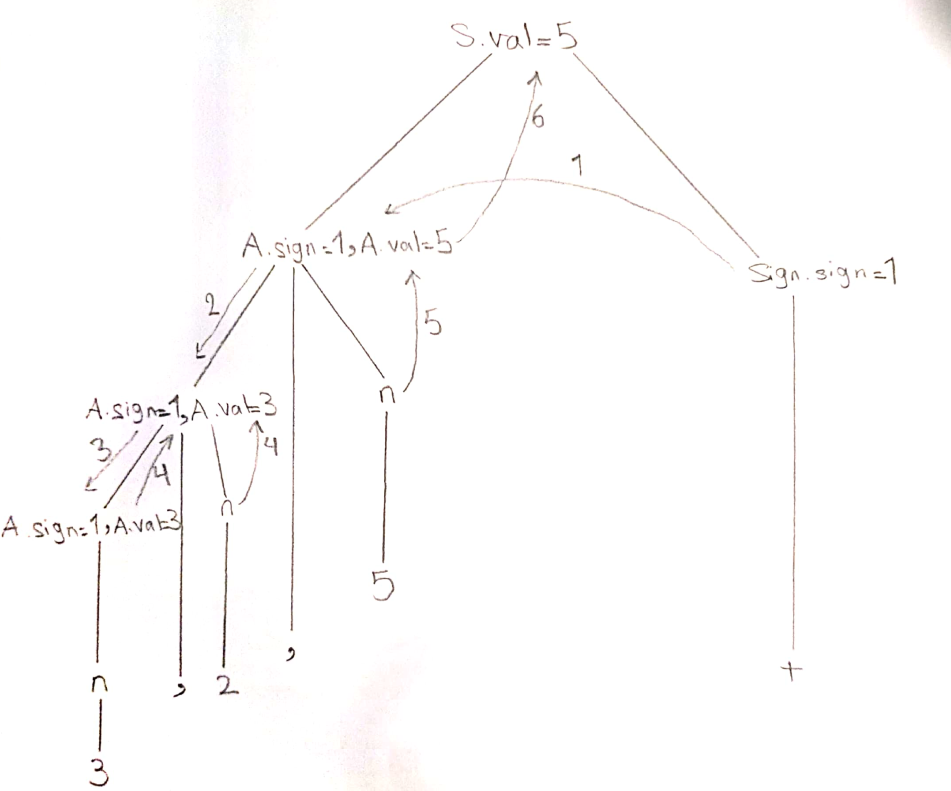 S.val=5
6
1
A.sign=1,A.val=5
Sign.sign=1
2
5
n
A.sign=1,A.val=3
3
4
4
n
A.sign=1,A.val=3
5
,
n
,
2
+
3